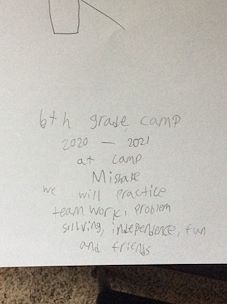 6th grade camp
2020 — 2021
at camp
we will practice
team work, problem
sullving, independence, fun
and friends